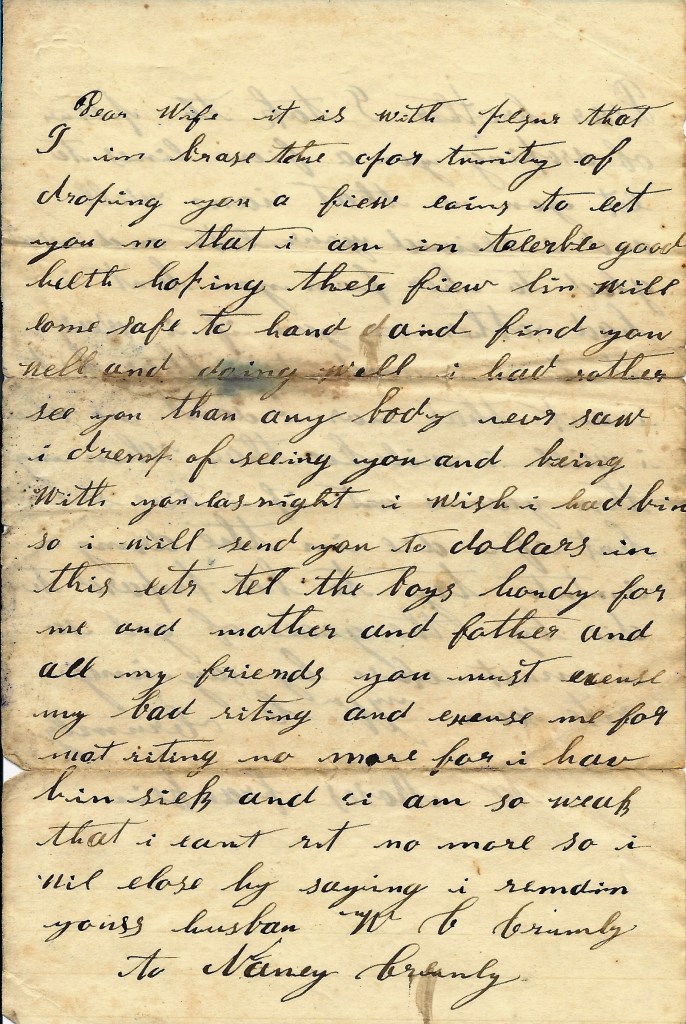 Dear Wife it is with plesur that
I im brase the opor tunity of
droping you a fiew loins to let
you no that i am in tolerble good
helth hoping these fiew lin will
come safe to hand and find you
well and doing well i had rother
see you than any body never saw
i dremp of seeing you and being
with you las night i wish i had bin
so i will send you to dollars in
this letr tel the boys houdy for
me and mother and father and
all my friends you must excuse
my bad riting and excuse me for
not riting no more for i hav
bin sick and i am so weak
that i cant rit no more so i
wil close by saying i remain
yours husban W C Crumly
to Nancy Crumly